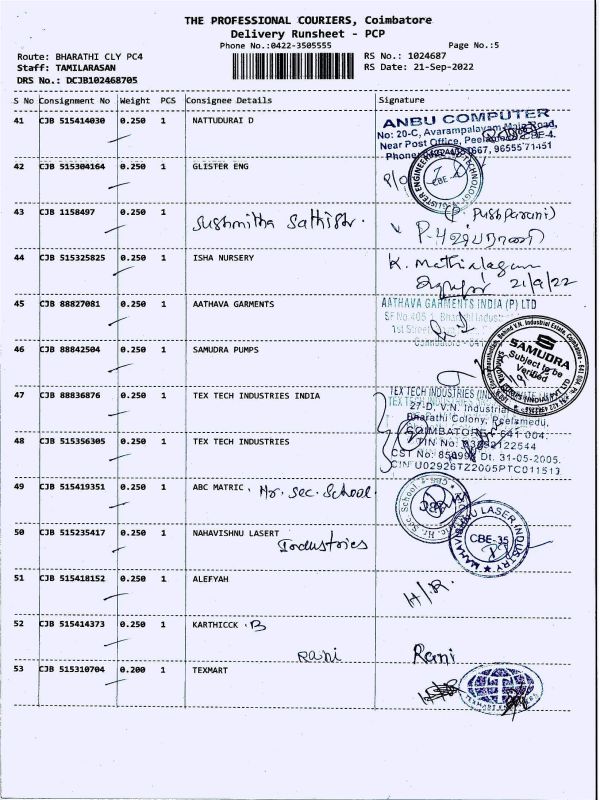 THE PROFESSIONAL COURIERS, Coimbatore
Delivery Runsheet - PCP
Phone No.:0422-3505555
Page No.:5
Route: BHARATHI CLY PC4
RS No.: 1024687
Staff: TAMILARASAN
RS Date: 21-Sep-2022
DRS No.: DCJB102468705
S No Consignment No Weight PCS Consignee Details Signature
41 CJB 515414030 0.250 1 NATTUDURAI D
ANBU COMPUTER
No: 20-C, Avarampalayam Main Road,
Near Post Office, Peelamedu, CBE-4.
42 CJB 515304164 0.250 1 GLISTER ENG
CBE
43 CJB 1158497 0.250 1 Sushmitha Sathish.
(P. Pushparani)
44 CJB 515325825 0.250 1 ISHA NURSERY
K. Mathialagan
21/9/22
45 CJB 88827081 0.250 1 AATHAVA GARMENTS
AATHAVA GARMENTS INDIA (P) LTD
46 CJB 88842504 0.250 1 SAMUDRA PUMPS
SAMUDRA
Subject to be
Verified
47 CJB 88836876 0.250 1 TEX TECH INDUSTRIES INDIA
TEX TECH INDUSTRIES
27-D, V.N. Industrial
Bharathi Colony, Peelamedu,
48 CJB 515356305 0.250 1 TEX TECH INDUSTRIES
COIMBATORE - 641 004.
Dt. 31-05-2005.
CIN U02926TZ2005PTC011513
49 CJB 515419351 0.250 1 ABC MATRIC. Hr. Sec. School.
50 CJB 515235417 0.250 1 NAHAVISHNU LASERT
Industries
MAHAVISHNU LASER INDUSTRY
CBE-35
51 CJB 515418152 0.250 1 ALEFYAH
H/R.
52 CJB 515414373 0.250 1 KARTHICCK . B
Rani Rani
53 CJB 515310704 0.200 1 TEXMART